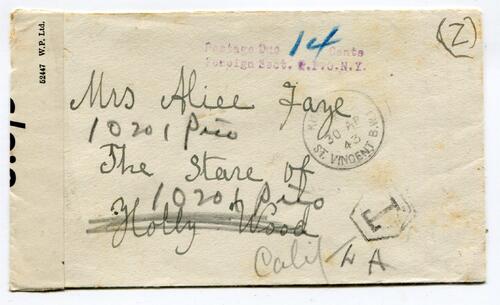 52447 W.P. Ltd.
(Z)
Postage Due 14 Cents
Foreign Sect. G.P.O. N.Y.
Mrs Alice Faye
10201 Pico
The Stare of
10201 Pico
Holly Wood
Calif
LA
30 AP
43
ST. VINCENT B.W.I
T